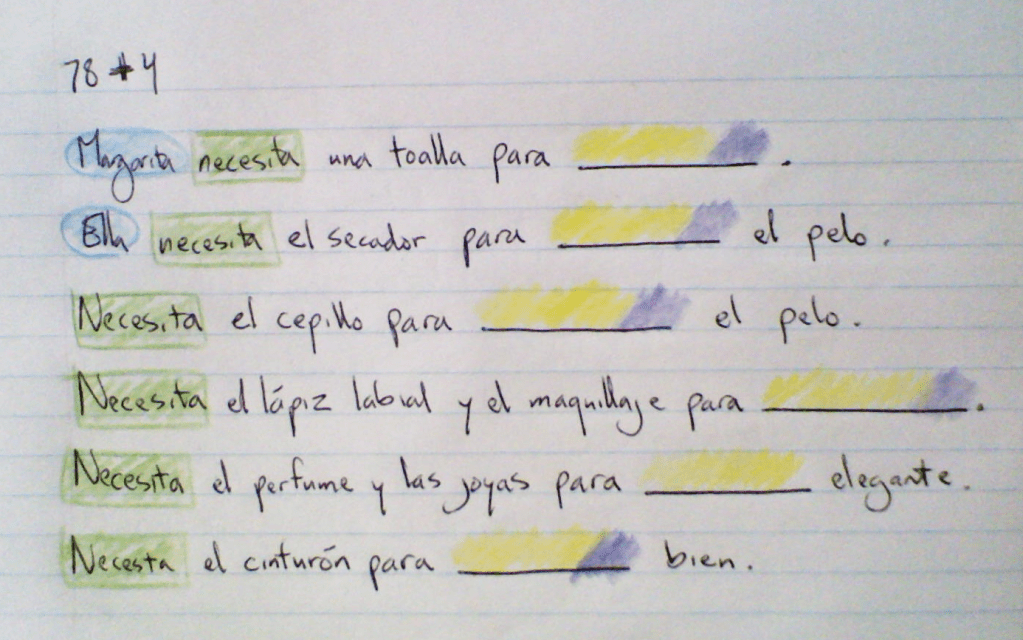 78 #4
Margarita necesita una toalla para ________.
Ella necesita el secador para ________ el pelo.
Necesita el cepillo para ________ el pelo.
Necesita el lápiz labial y el maquillaje para ________.
Necesita el perfume y las joyas para ________ elegante.
Necesta el cinturón para ________ bien.